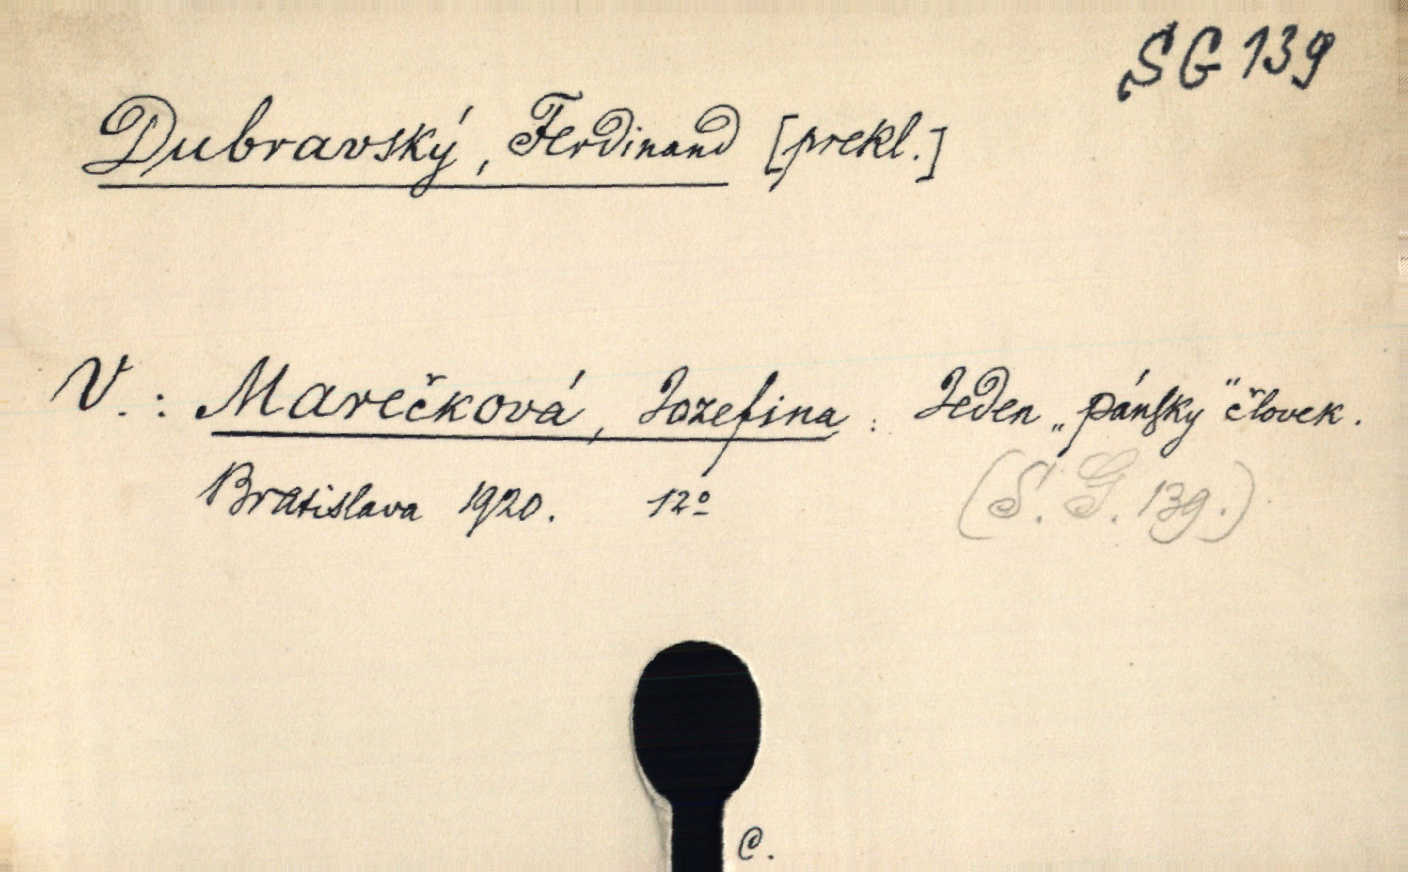 SG 139
Dubravský, Ferdinand [prekl.]
V.: Marečková, Jozefina: Jeden „pánsky“ človek.
Bratislava 1920. 12º (S. G. 139.)
C.